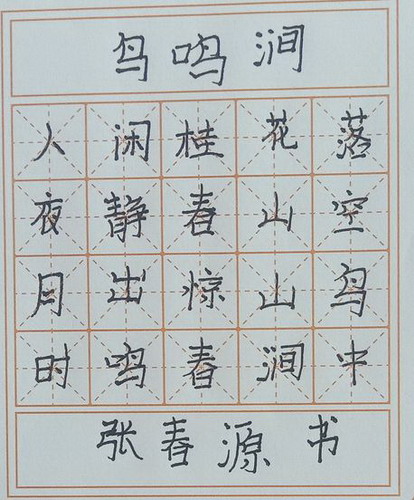 鸟鸣涧
人闲桂花落
夜静春山空
月出惊山鸟
时鸣春涧中
张春源书